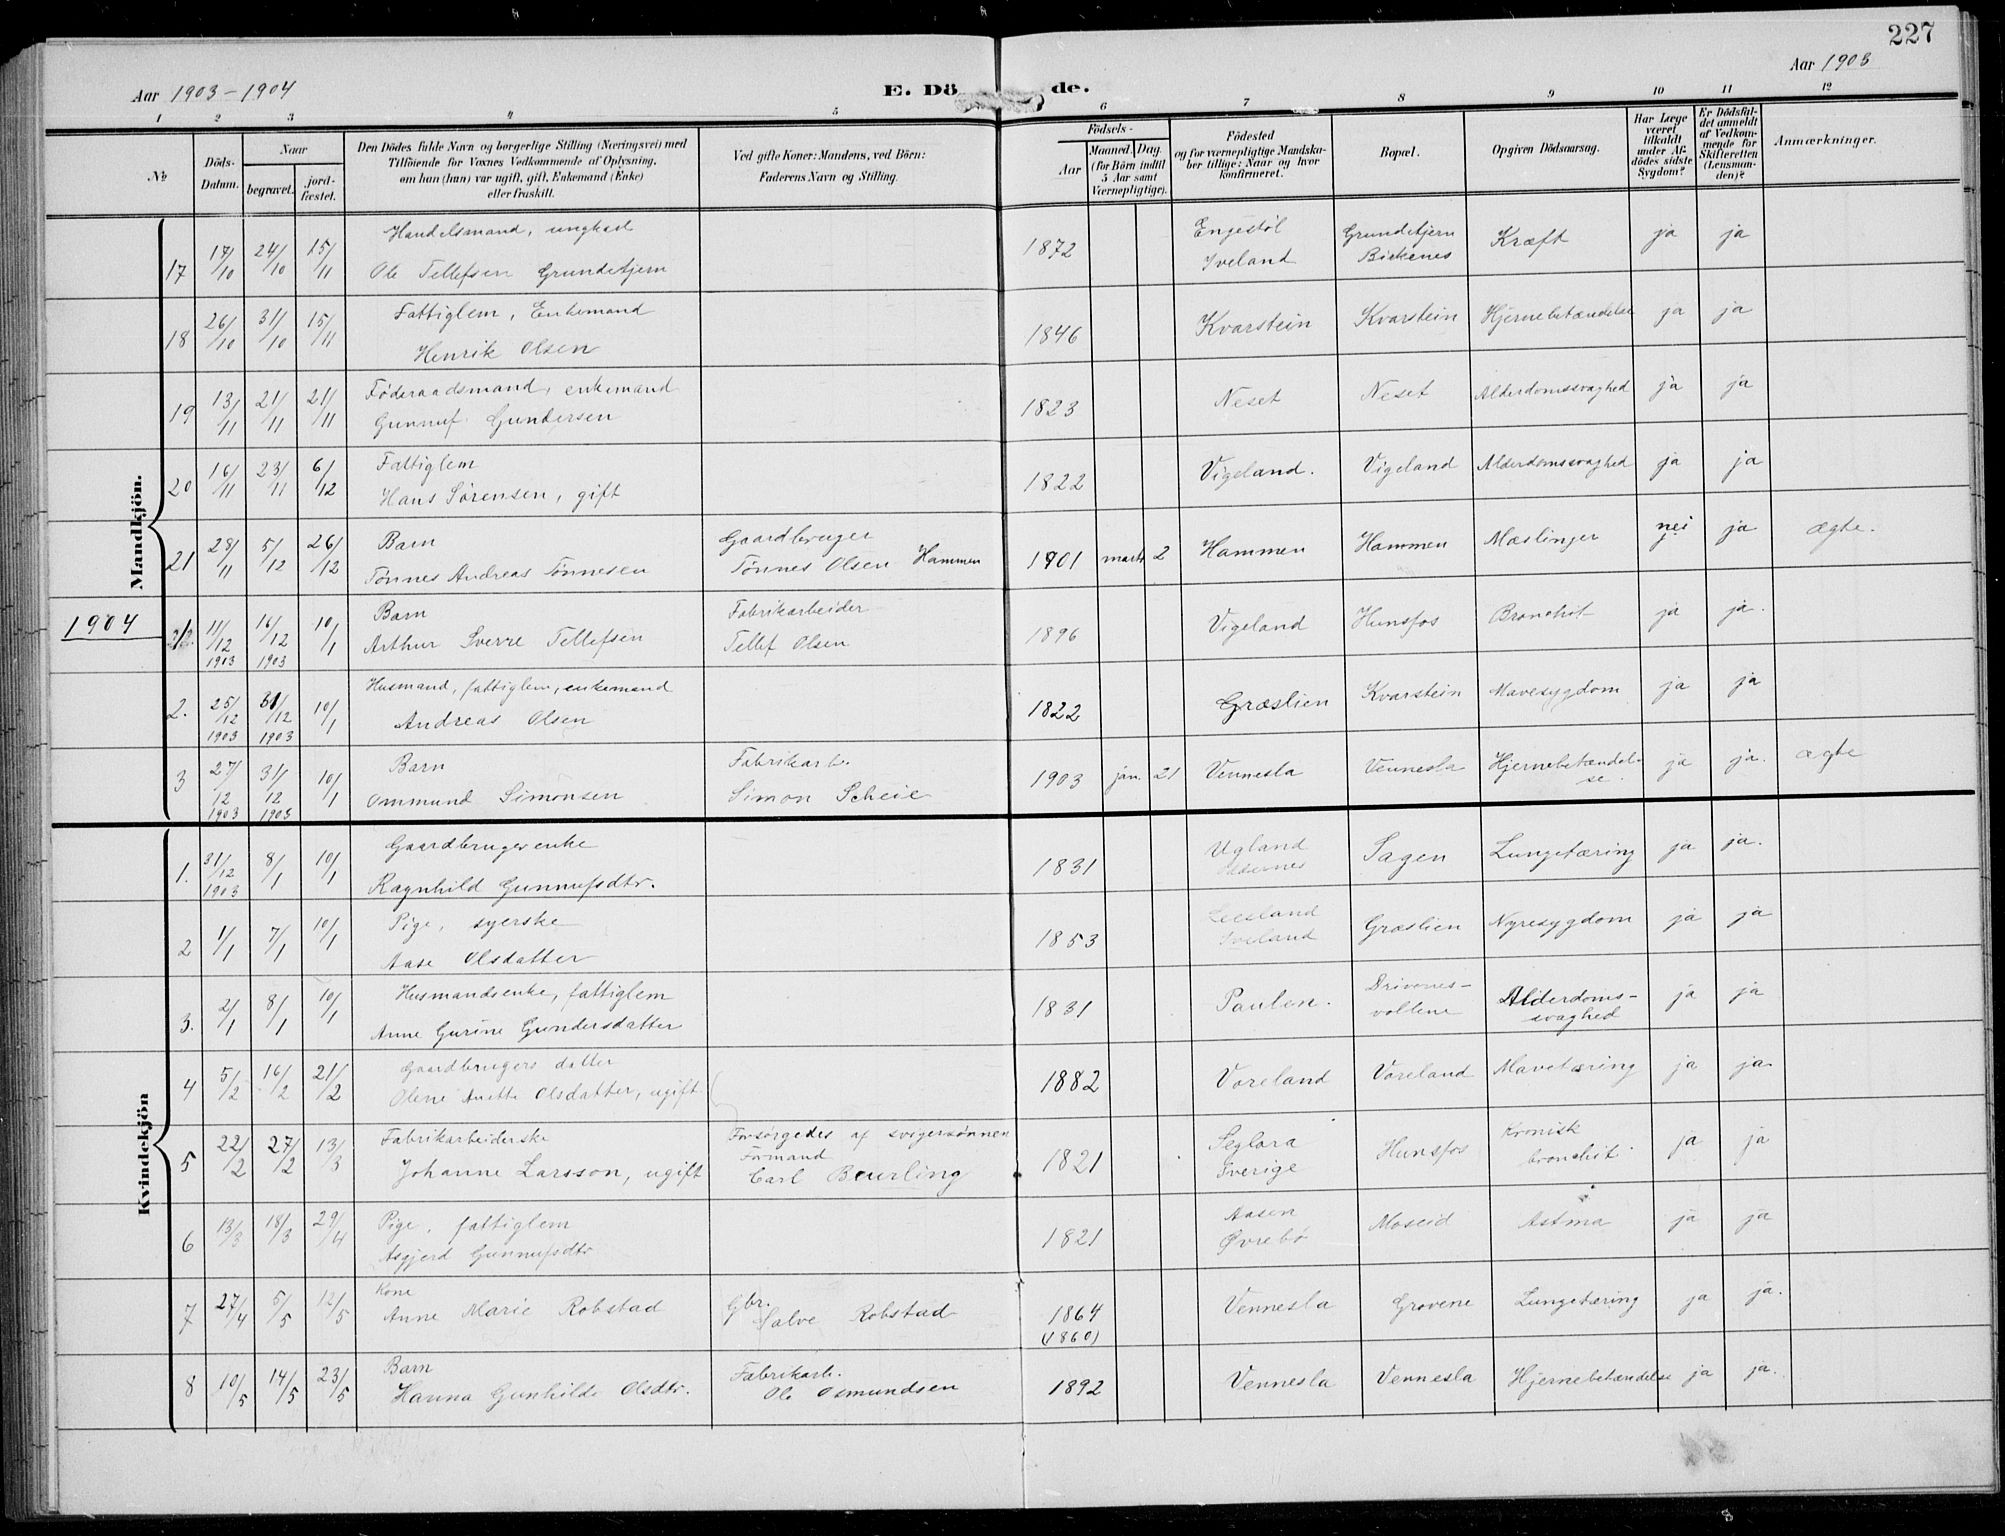 227
Aar 1903 - 1904
E. Dö de.
Aar 1903
1 2 3 4 5 6 7 8 9 10 11 12
№
Döds-Datum.
Naar
begravet.
jord-fæstet.
Den Dödes fulde Navn og borgerlige Stilling (Næringsvei) med
Tilföiende for Voxnes Vedkommende af Oplysning,
om han (hun) var ugift, gift, Enkemand (Enke)
eller fraskilt.
Ved gifte Koner: Mandens, ved Börn:
Faderens Navn og Stilling.
Födsels-
Aar
Maaned. Dag.
(for Börn indtil
5 Aar samt
Værnepligtige).
Födested
og for værnepligtige Mandska-
ber tillige: Naar og hvor
konfirmeret.
Bopæl.
Opgiven Dödsaarsag.
Har Læge
været
tilkaldt
under Af-
dödes sidste
Sygdom?
Er Dödsfal-
det anmeldt
af Vedkom-
mende for
Skifteretten
(Lensman-
den)?
Anmærkninger.
Mandkjön.
17 17/10 24/10 15/11 Handelsmand, ungkarl 1872 Engestöl Grundetjern Kræft ja ja
Ole Tellefsen Grundetjern Iveland Birkenes
18 26/10 31/10 15/11 Fattiglem, Enkemand 1846 Kvarstein Kvarstein Hjernebetændelse ja ja
Henrik Olsen
19 13/11 21/11 21/11 Föderaadsmand, enkemand 1823 Neset Neset Alderdomssvaghed ja ja
Gunnuf Gundersen
20 16/11 23/11 6/12 Fattiglem 1822 Vigeland. Vigeland Alderdomssvaghed ja ja
Hans Sørensen, gift
21 28/11 5/12 26/12 Barn Gaardbruger 1901 marts 2 Hammen Hammen Mæslinger nei ja ægte.
Tønnes Andreas Tønnesen Tønnes Olsen Hammen
1904
11/12 1903 16/12 1903 10/1 Barn Fabrikarbeider 1896 Vigeland Hunsfos Bronchit ja ja.
Arthur Sverre Tellefsen Tellef Olsen
2. 25/12 1903 31/12 1903 10/1 Husmand, fattiglem, enkemand 1822 Græslien Kvarstein Mavesygdom ja ja
Andreas Olsen
3 27/12 1903 31/12 1903 10/1 Barn Fabrikarb. 1903 jan. 21 Vennesla Vennesla Hjernebetændel- ja ja. ægte
Ommund Simonsen Simon Scheie se.
Kvindekjön
1. 31/12 1903 8/1 10/1 Gaardbrugerenke 1831 Ugland Sagen Lungetæring ja ja.
Ragnhild Gunnufsdtr.
2 1/1 7/1 10/1 Pige, syerske 1853 Græslien Nyresygdom ja ja
Aase Olsdatter Iveland
3. 2/1 8/1 10/1 Husmandsenke, fattiglem 1831 Paulen. Drivenes- Alderdoms- ja ja
Anne Gurine Gundersdatter vollene svaghed
4 5/2 16/2 21/2 Gaardbrugers datter 1882 Voreland Voreland Mavetæring ja ja
Olene Anette Olsdatter, ugift
5 22/2 27/2 13/3 Fabrikarbeiderske Forsörgedes af svigersønnen 1821 Seglora Hunsfos Kronisk ja ja
Johanne Larsson, ugift Formand Carl Beurling Sverige bronchit.
6 13/3 18/3 29/4 Pige, fattiglem 1821 Aasen Moseid Astma ja ja
Asgjerd Gunnufsdtr Øvrebö
7 27/4 5/5 12/5 Kone Gbr. 1864 Vennesla Grovene Lungetæring ja ja.
Anne Marie Robstad Salve Robstad (1860)
8 10/5 14/5 23/5 Barn Fabrikarb. 1892 Vennesla Vennesla Hjernebetændelse ja ja.
Hanna Gunhilde Olsdtr. Ole Osmundsen